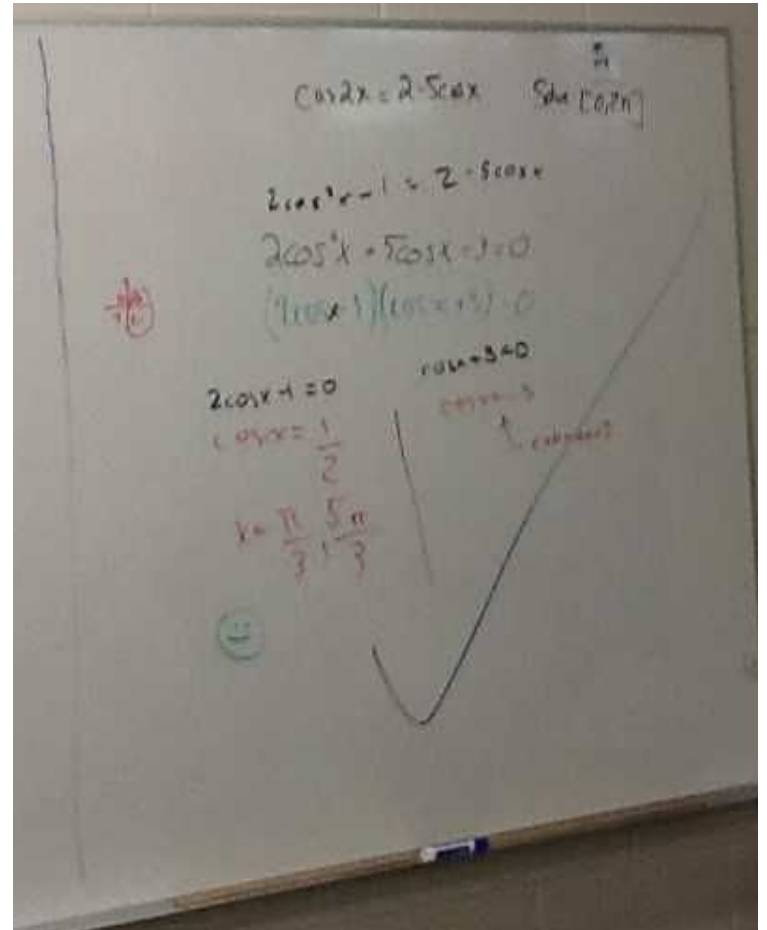 cos2x = 2-5cosx Solve [0,2π]
2cos²x - 1 = 2 - 5cosx
2cos²x + 5cosx - 3 = 0
(2cosx-1)(cosx+3) = 0
2cosx-1 = 0
cosx+3=0
cosx = 1/2
cosx=-3
x = π/3, 5π/3